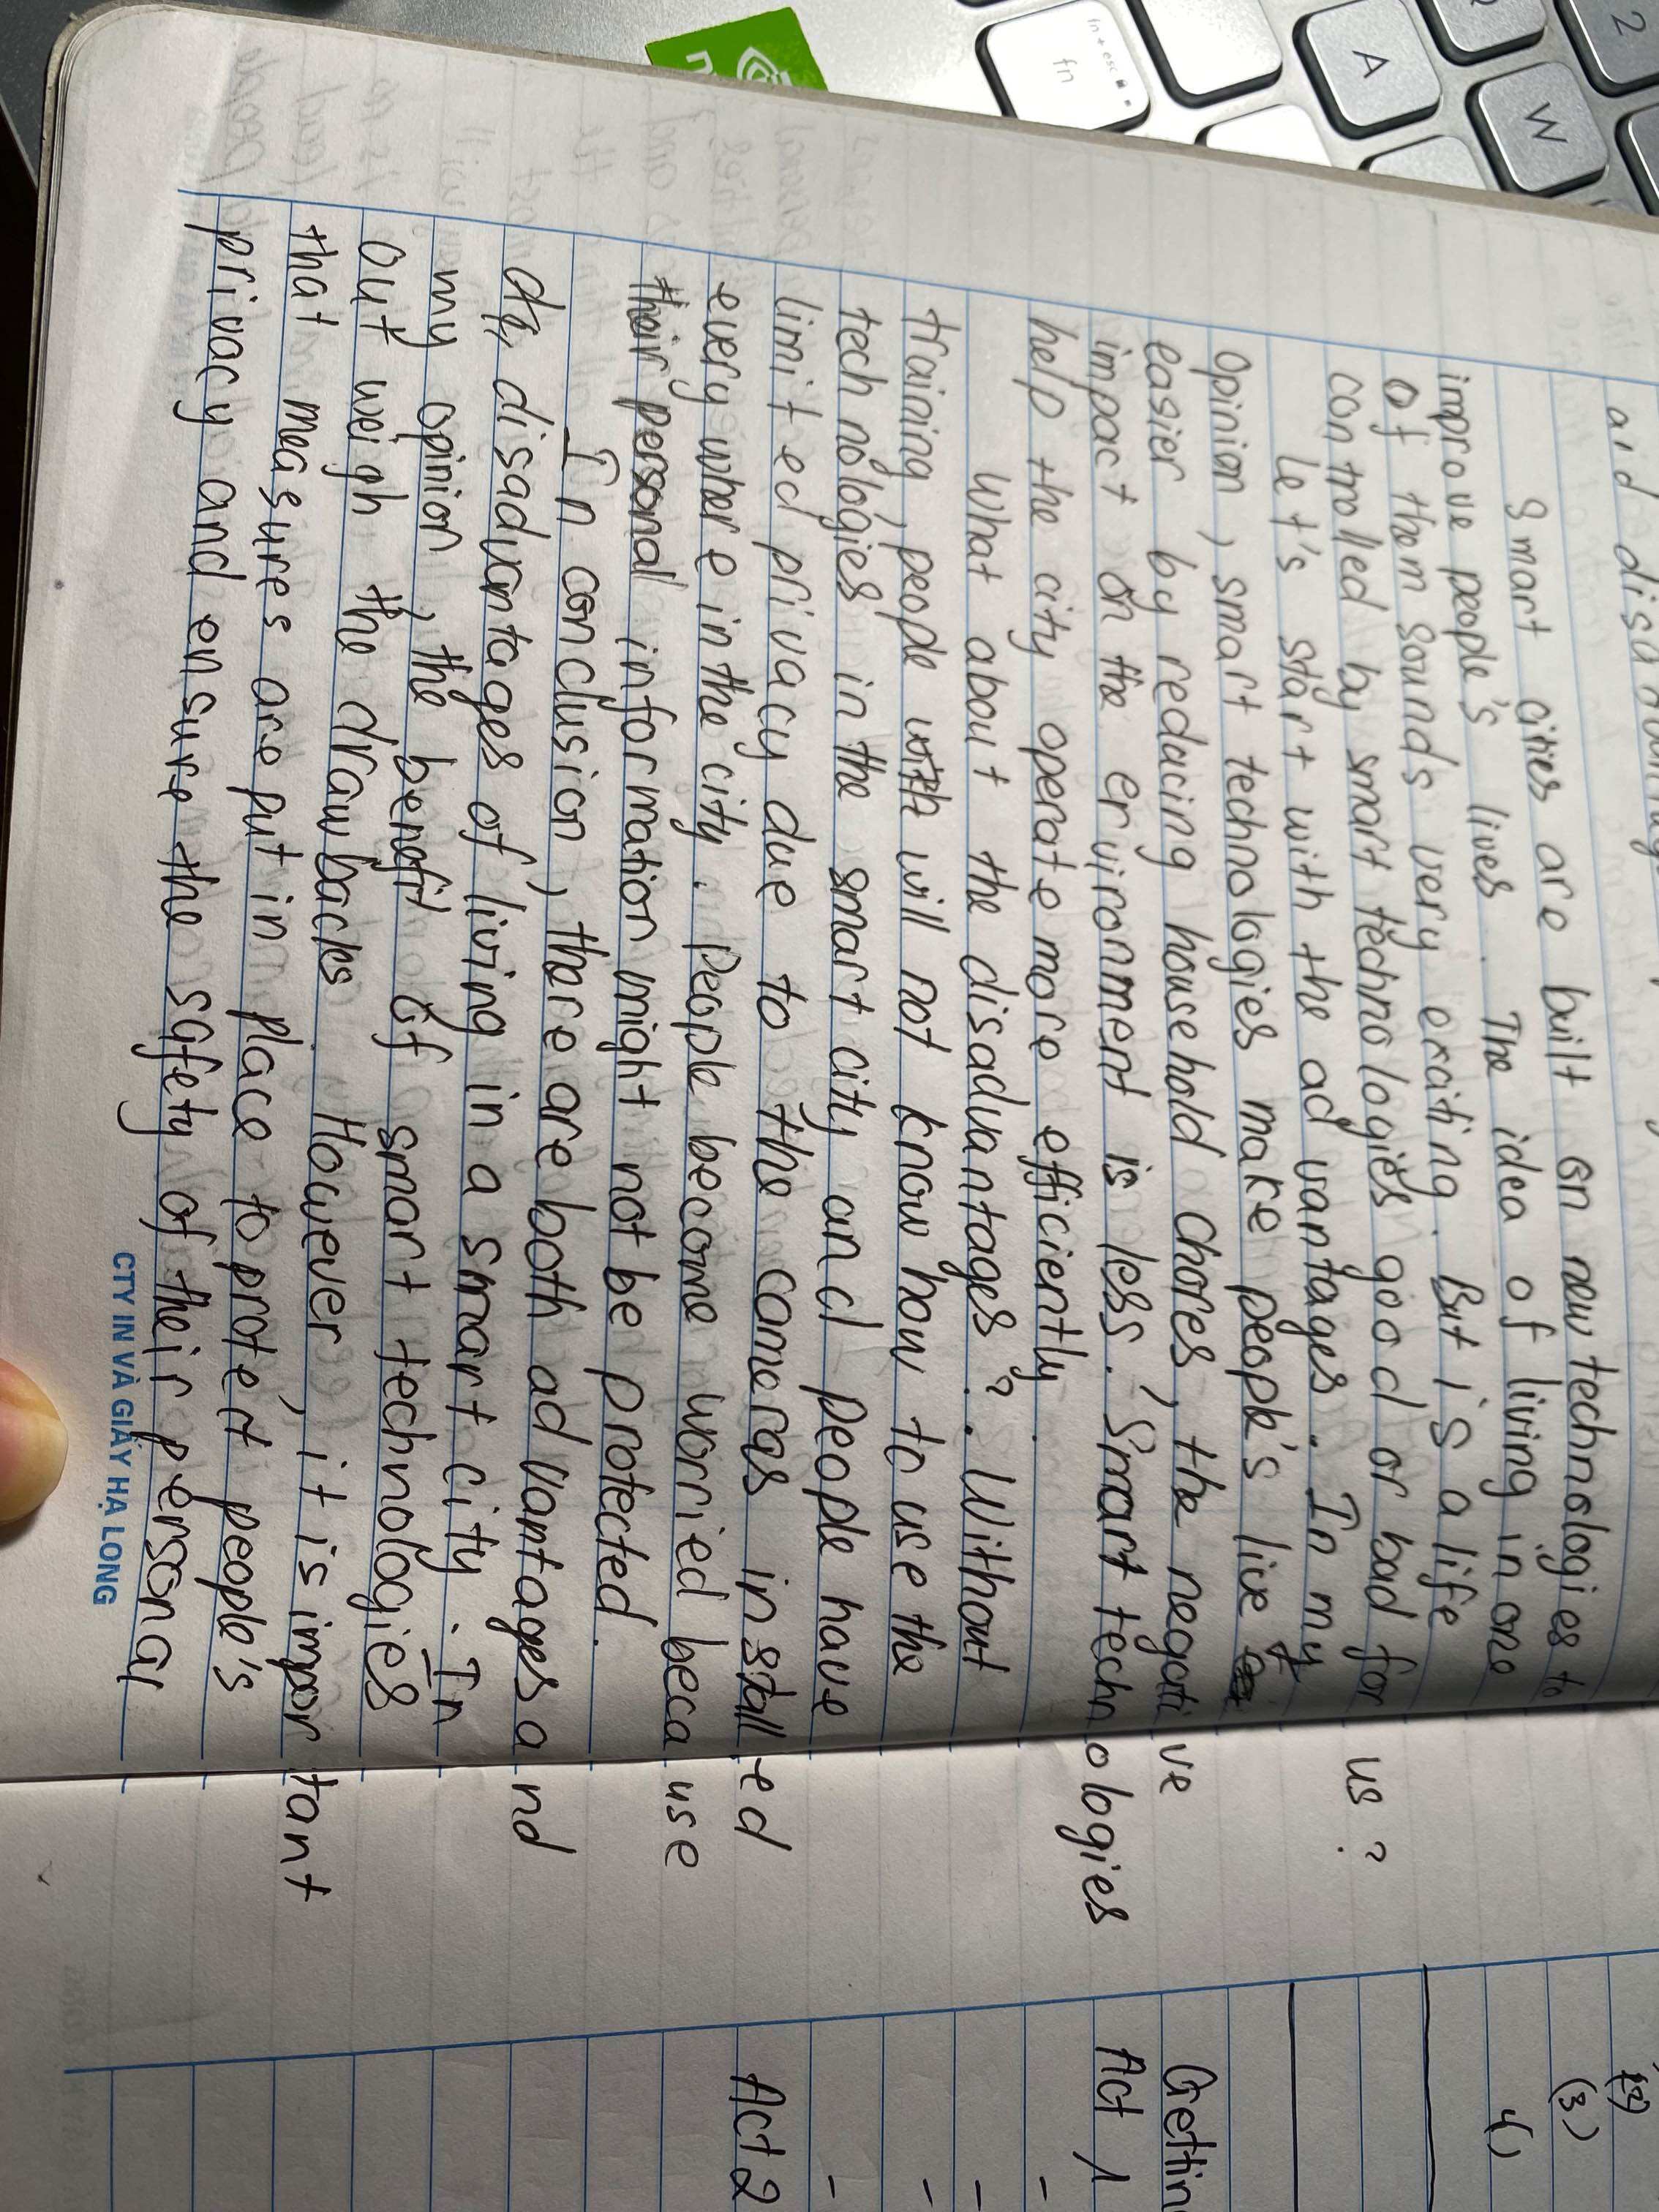 and disadvantages
Smart cities are built on new technologies to
improve people's lives. The idea of living in one
of them sounds very exciting. But is a life
controlled by smart technologies good or bad for us?
Let's start with the advantages. In my
opinion, smart technologies make people's live
easier by reducing household chores, the negative
impact on the environment is less. Smart technologies
help the city operate more efficiently.
What about the disadvantages?. Without
training, people with will not know how to use the
technologies in the smart city and people have
limited privacy due to the cameras installed
everywhere in the city. People become worried because
their personal information might not be protected.
In conclusion, there are both advantages and
disadvantages of living in a smart city. In
my opinion, the benefit of smart technologies
out weigh the drawbacks. However, it is important
that measures are put in place to protect people's
privacy and ensure the safety of their personal
CTY IN VÀ GIẤY HẠ LONG
(3)
4)
Act 1
-
-
-
-
Act 2
fn+esc
fn
A
W
2